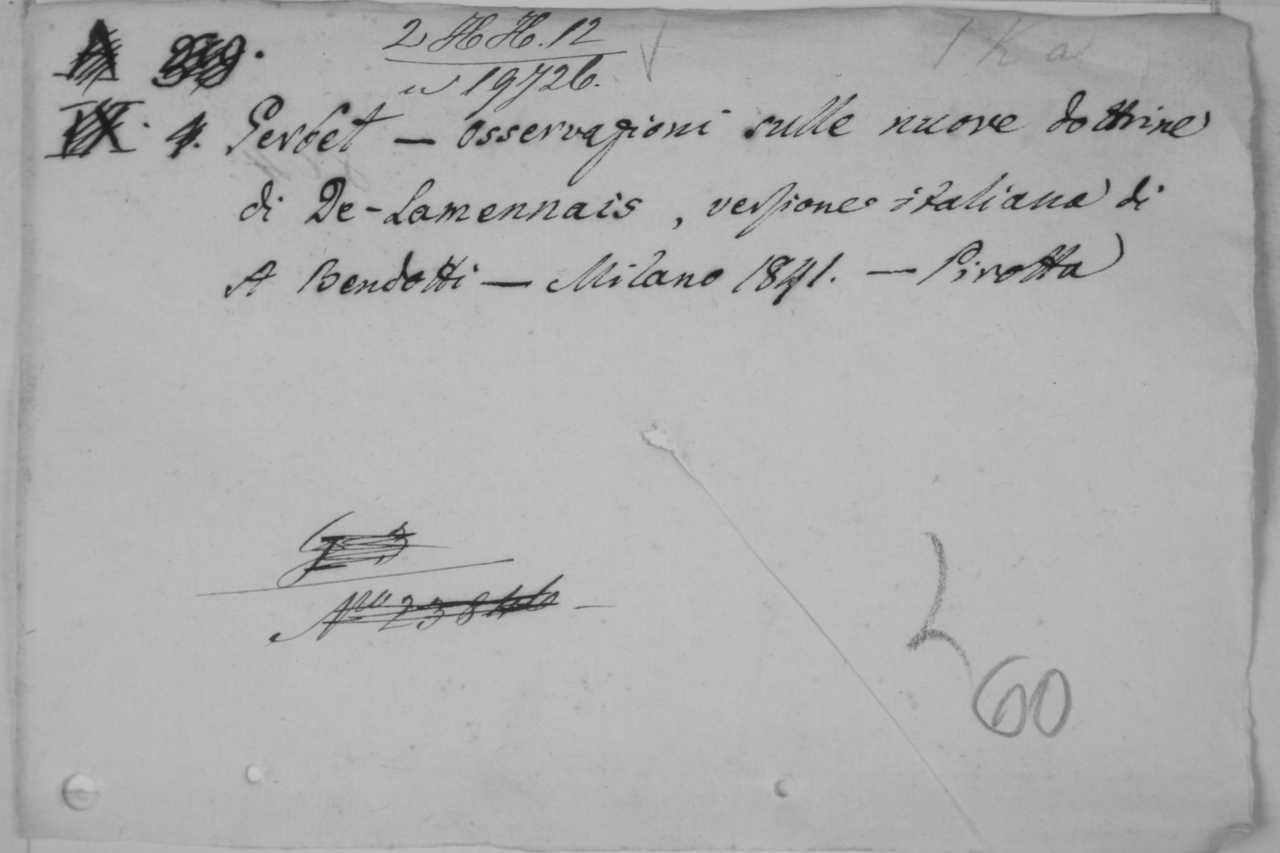 A 239.
2 H H. 12
n 19726.
1 K a
IX. 4. Gerbet — Osservazioni sulle nuove dottrine
di De-Lamennais, versione italiana di
A Bendotti — Milano 1841. — Pirotta
No 23846
L 60